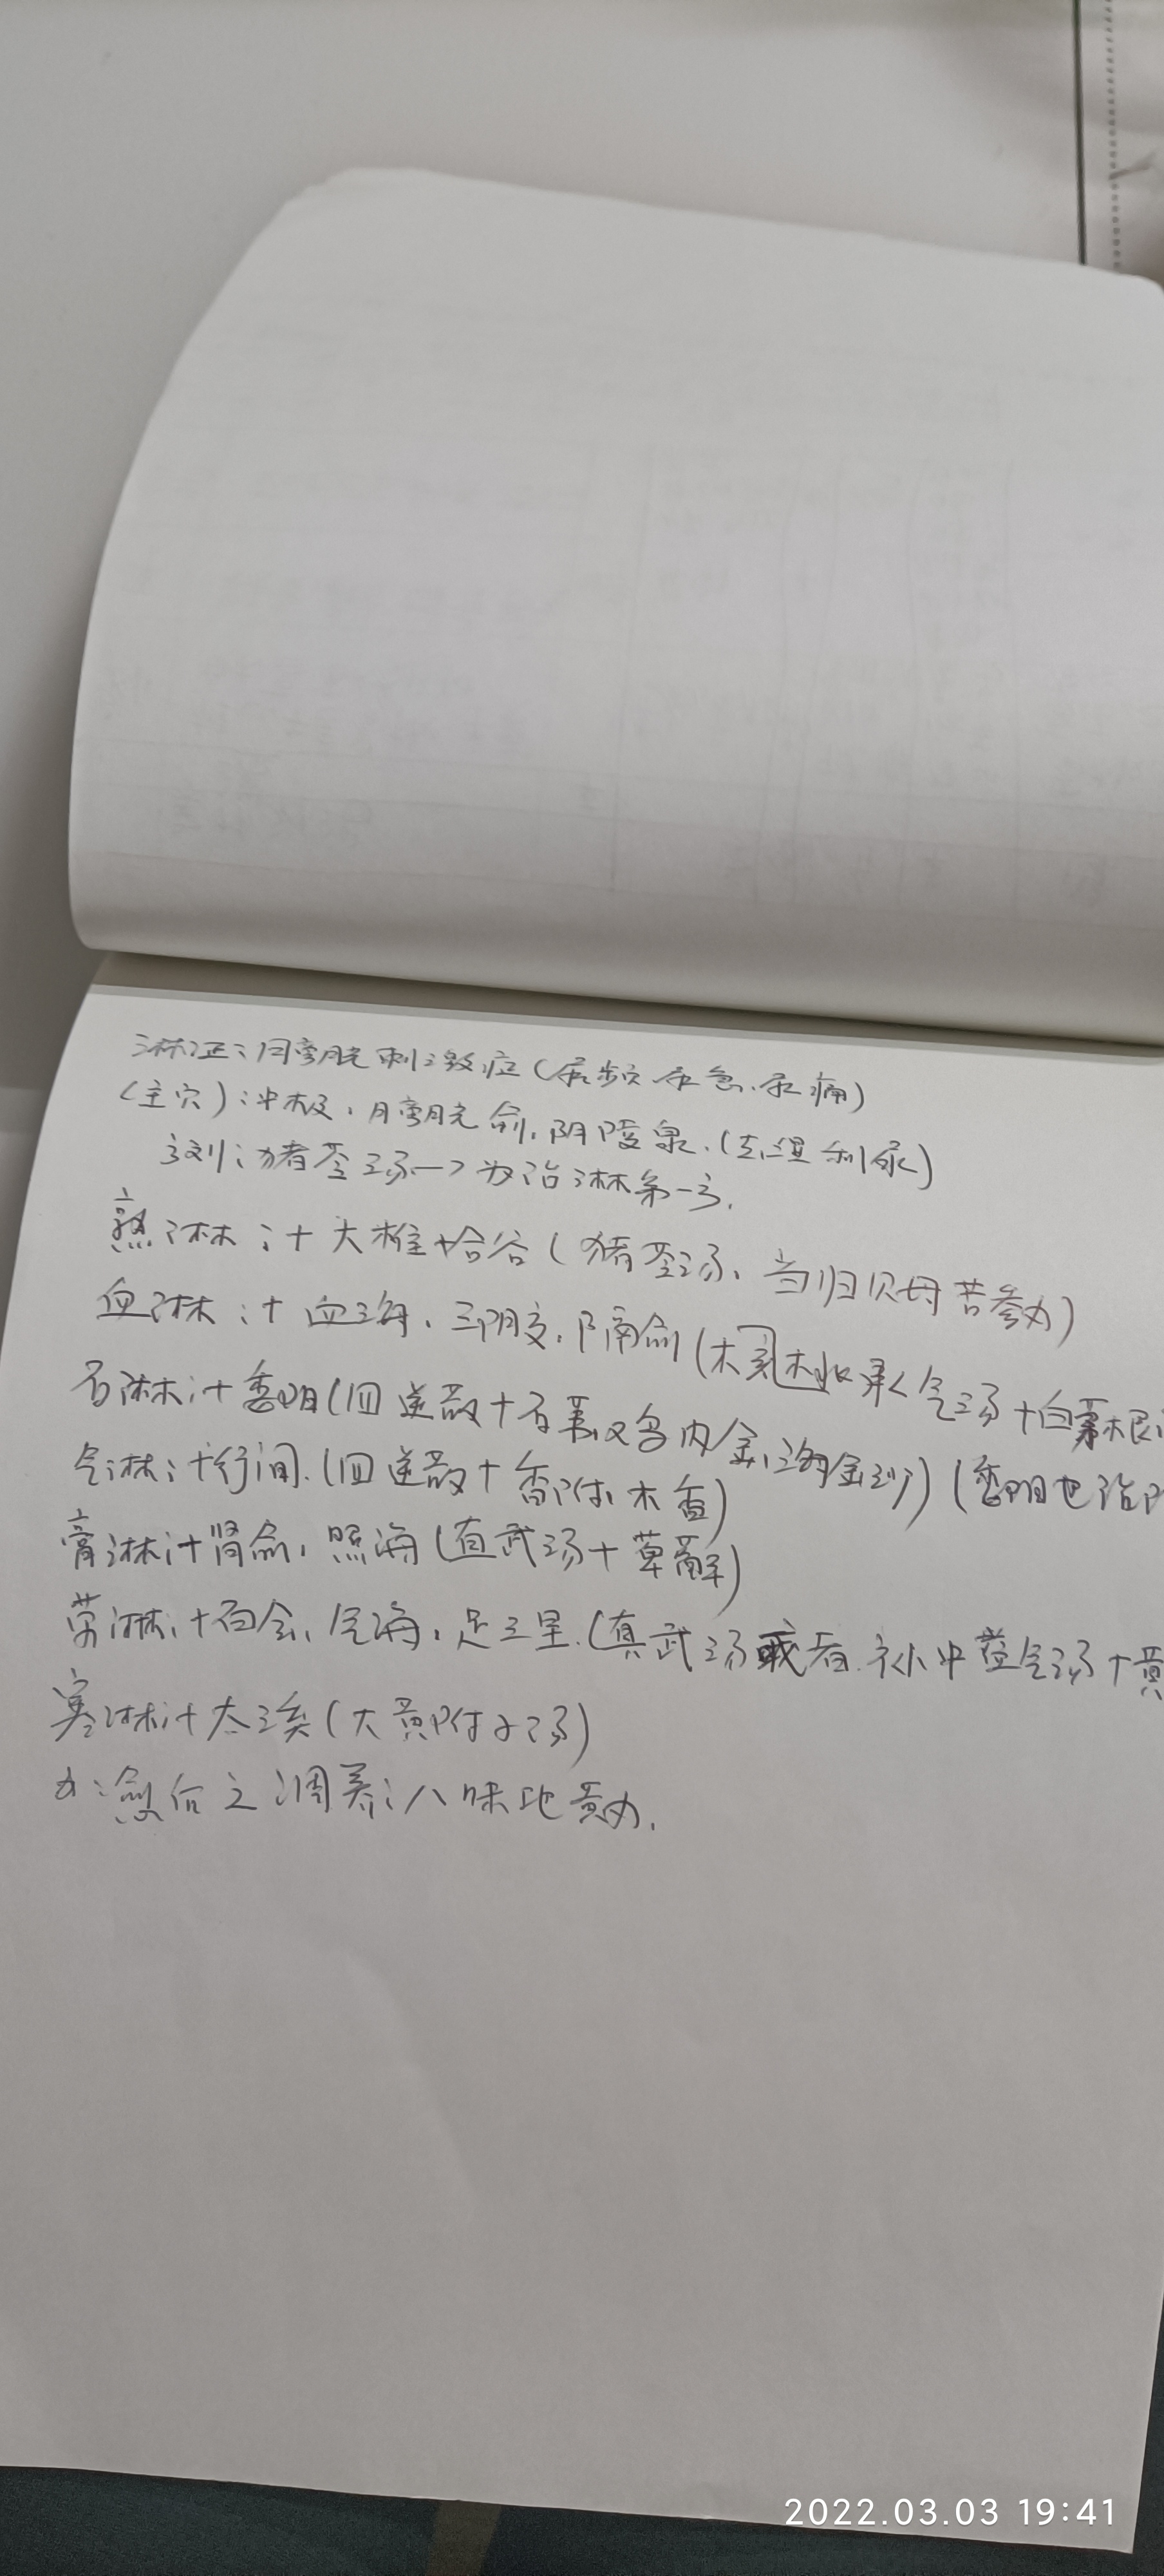 淋证：膀胱刺激症（尿频、尿急、尿痛）
（主穴）：中极、膀胱俞、阴陵泉.（去湿利尿）
方剂：猪苓汤—>为治淋第一方.
热淋：+大椎+合谷（猪苓汤、当归贝母苦参丸）
血淋：+血海、三阴交、膈俞（桃核承气汤+白茅根
石淋：+委阳（四逆散+石苇、鸡内金、海金沙）（委阳也治
气淋：+行间.（四逆散+香附、木香）
膏淋：+肾俞、照海（真武汤+萆薢）
劳淋：+百会、气海、足三里.（真武汤或者.补中益气汤+黄
寒淋：+太溪（大黄附子汤）
愈后之调养：八味地黄丸.
2022.03.03 19:41